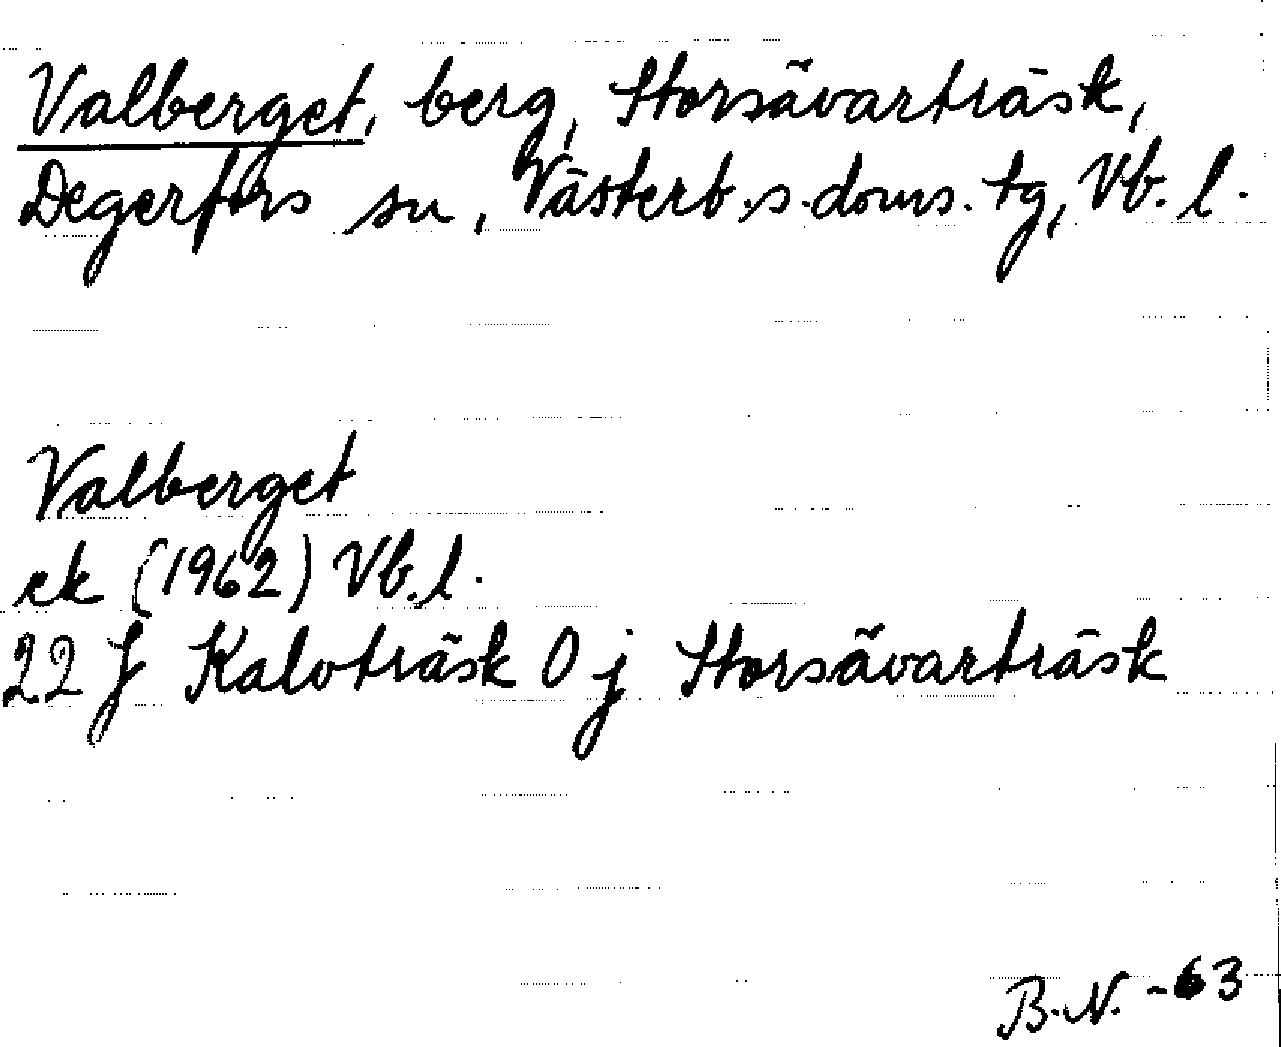 Valberget, berg, Storsävarträsk,
Degerfors sn, Västerb.s.doms.tg, Vb.l.
Valberget
ek (1962) Vb.l.
22 J Kalvträsk 0 j Storsävarträsk
B.N. -63